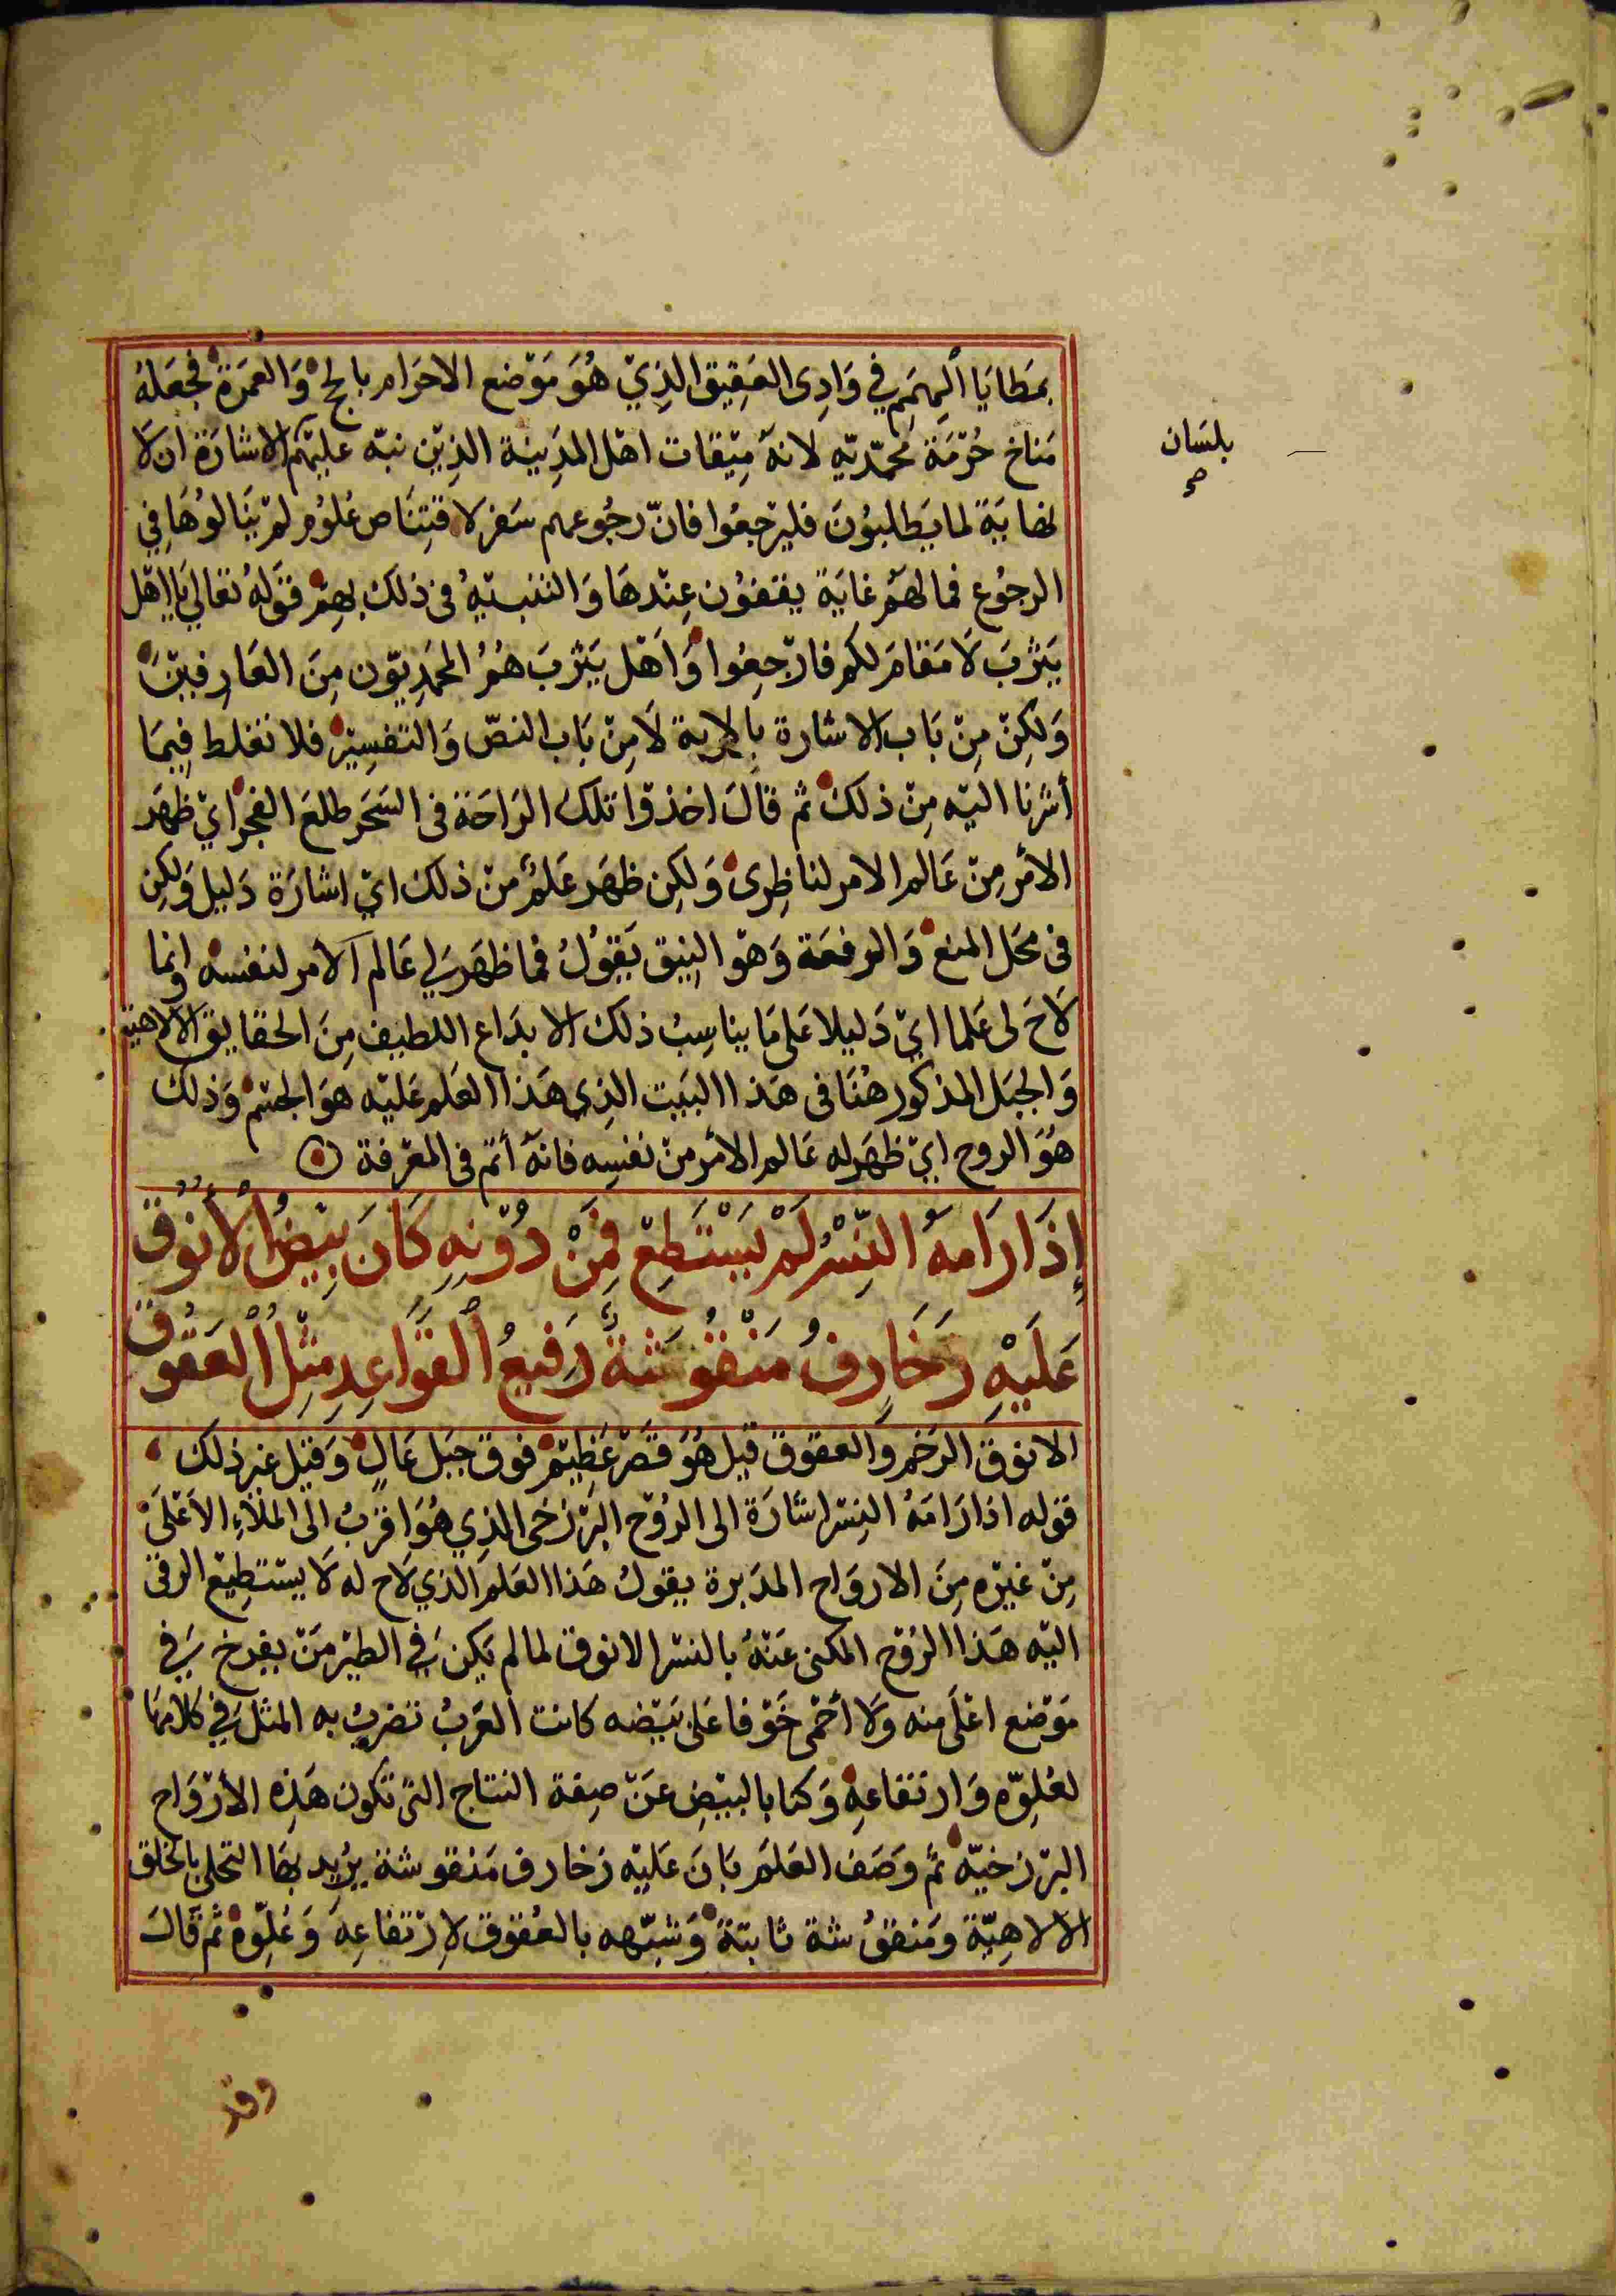 بمَطايَا الهِمَم في وَادِى العَقِيق الذِيْ هُوَ مَوْضع الاحرَام بالحج وَالعمرَة فجعَلهُ
مَناخ حُرْمَة محمّديّه لانهٌ مِيْقات اهْل المَدِينة الذِيْن نبّه عليْهم الاشارَة ان لَا
بلسَان
صح
لغايَة لما يَطلبوُنَ فليرْجعُوا فانّ رجُوعهم سَفر لاقتِنَاص عُلوُم لمْ يَنَالوُهَا في
الرجوُع فما لهَمْ غايَة يقفوُن عِنْدهَا وَالتنبيْهُ فى ذلكَ بهِمْ قوَلهُ تعَالى يَا اهْل
يَثربَ لَا مَقامَ لكم فارْجعِوُا وَاَهْل يَثربَ هُمُ المحمَدِيّون مِنَ العَارفيْنَ
وَلكِنْ مِنْ بَاب الاشارة بالاية لَا مِنْ بَاب النصّ وَالتفسِيْر فلا تغلط فيمَا
أشرنا اليْه مِنْ ذلك ثم قالَ اخذوْا تلك الرَاحَة فى السَحَر طلعَ الفجر ايْ ظهَر
الأمْر مِنْ عَالم الامر لناظِرى وَلكِن ظهَر عَلمٌ منْ ذلك ايْ اشارَة دَليل وَلكِن
فى محَل المنع وَالرفعَة وَهوْ النِيْق يَقوُلُ فما ظهَر لي عَالم الأمر لنفسه وانما
لَاحَ لى عَلما ايْ دَليلا عَلى مَا يناسِبُ ذلك الابدَاع اللطيف مِنَ الحقايق الالاهية
وَالجبَل المذكور هُنَا فى هَذا البَيت الذِي هَذا العَلم عَليْه هوَ الجسْم وَذلك
هُوَ الروح ايْ ظهَر له عَالم الأمْر منْ نفسِه فانهٌ أتم فى المعْرفة
إِذَا رَامَهُ النِّسْرُ لَمْ يَسْتَطِعْ فَمِنْ دُوْنِهِ كَانَ بِيْضُ الأُنوُق
عَلَيْهِ زَخَارِفُ مَنْقُوشَةٌ رَفيعُ القَوَاعِدِ مِثْلُ العَقُوق
الانوق الرَخم وَالعقوق قيل هُوَ قصْرٌ عَظيْم فوق جبَل عَالٍ وَقيْل غير ذلك
قوله اذا رَامَهُ النِسْر اشارَة الى الرُوْح البرْزخى الذِي هُوَ اقربُ الى الملأ الاَعْلىَ
مِنْ غيْره مِنَ الاروَاح المدَبرة يقولُ هَذا العَلم الذي لاح له لَا يسْتطيْع الرقى
اليْه هَذا الرُوْح المكنى عَنْهُ بالنسْر الانوق لما لم يَكن في الطيْر مَنْ يفرخ في
مَوْضع اعْلىَ منه وَلَا أحْمى خَوْفا عَلى بَيْضه كانت العَرَبُ تضربُ به المثلَ في كلامهَا
لعُلِوّه وَارتفاعهِ وَكنا بالبيْضِ عَنْ صِفة النتاج التى تكون هَذِه الأرْوَاح
البرْزخيّه ثم وصَفَ العَلمَ بَانَ عَليْه زخارف مَنقوشة يُريد بهَا التحلى بالخلق
الالاهِيّة ومَنقوُشة ثابتة وَشبّهه بالعُقوق لاِرْتفاعِه وَعُلوّه ثم قالَ
وقد